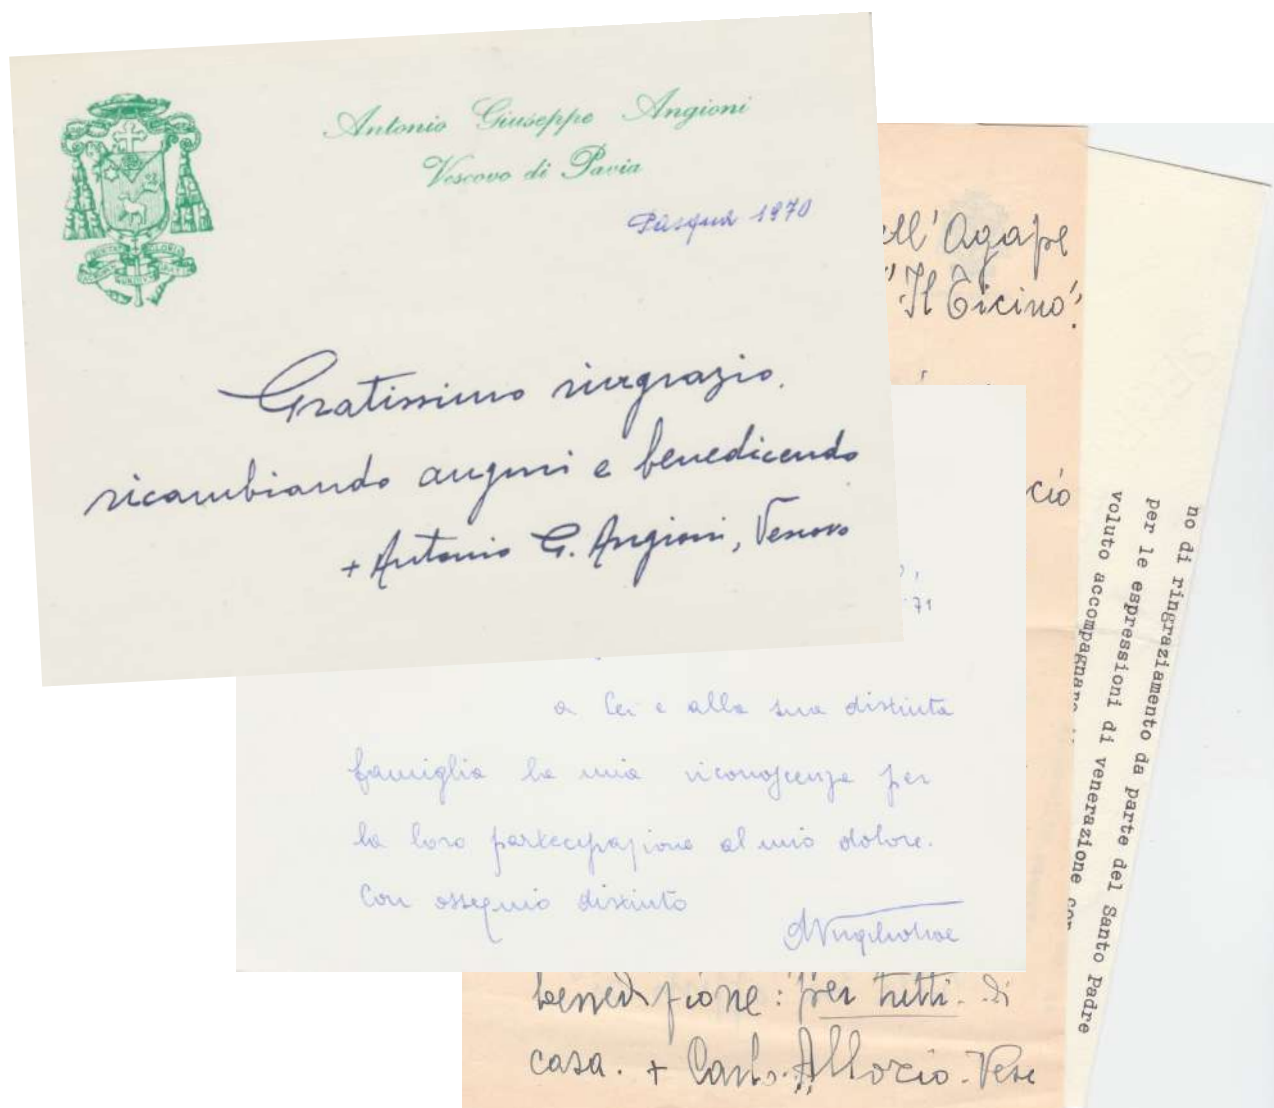 Antonio Giuseppe Angioni
Vescovo di Pavia
Pasqua 1970
Gratissimo ringrazio.
ricambiando auguri e benedicendo
+ Antonio G. Angioni, Vescovo
ell'Agape
"Il Ticino".
cio
71
a lei e alla sua distinta
famiglia la mia riconoscenza per
la loro partecipazione al mio dolore.
Con ossequio distinto
benedizione: per tutti di
casa. + Carlo Allorio - Vesc
no di ringraziamento da parte del Santo Padre
per le espressioni di venerazione con
voluto accompagnare